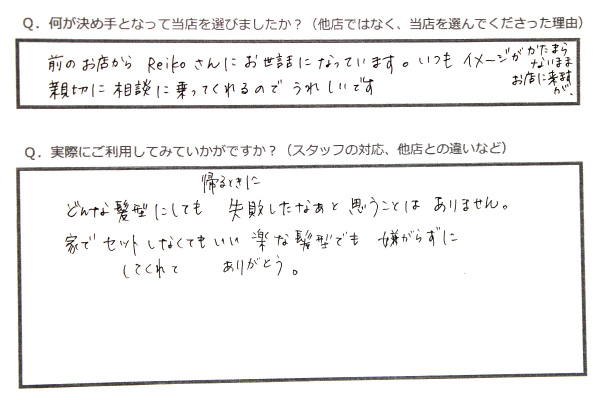 Q．何が決め手となって当店を選びましたか？（他店ではなく、当店を選んでくださった理由）
前のお店から Reikoさんに お世話に なっています。いつも イメージが かたまら
ないまま
お店に来ますが、
親切に 相談に 乗ってくれるので うれしいです
Q．実際にご利用してみていかがですか？（スタッフの対応、他店との違いなど）
帰るときに
どんな髪型にしても 失敗したなぁと 思うことは ありません。
家で セット しなくてもいい 楽な髪型でも 嫌がらずに
してくれて ありがとう。